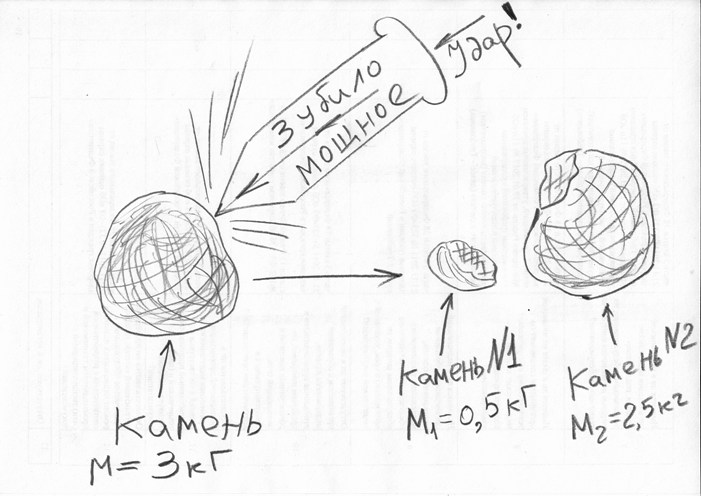 Удар!
Зубило
мощное
Камень
M = 3кГ
Камень N1
M₁=0,5кГ
Камень N2
M₂=2,5кг